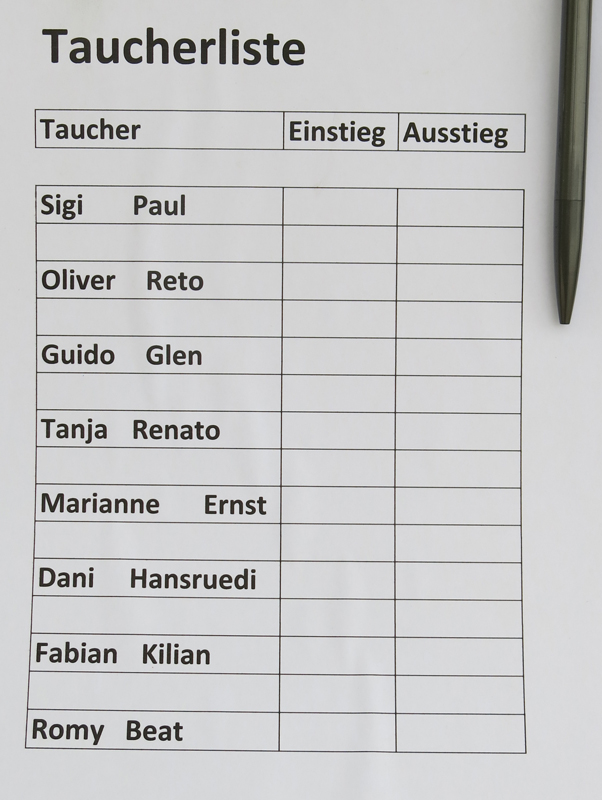 Taucherliste
Taucher Einstieg Ausstieg
Sigi Paul
Oliver Reto
Guido Glen
Tanja Renato
Marianne Ernst
Dani Hansruedi
Fabian Kilian
Romy Beat